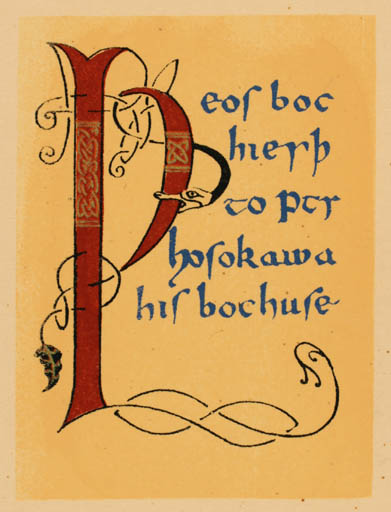 Þeos boc
hierþ
to ptr
hosokawa
his bochuse